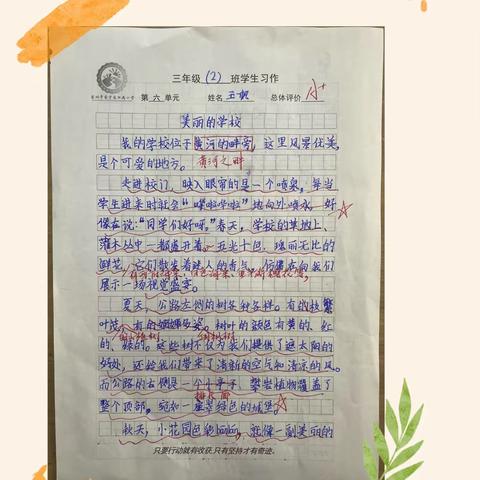 三年级 (2) 班学生习作
第 六 单元 姓名 王帆 总体评价 A+
美丽的学校
我的学校位于黄河的畔旁，这里风景优美，
是个可爱的地方。 黄河之畔
走进校门，映入眼帘的是一个喷泉，每当
学生进来时就会“哗啦哗啦”地向外喷水，好
像在说：“同学们好呀。”春天，学校的草地上、
灌木丛中一颗盛开着五光十色、瑰丽无比的
鲜花，它们散发着迷人的香气，仿佛在向我们
展示一场视觉盛宴。
夏天，公路左侧的树各种各样。有的枝繁
叶茂，有的婀娜多姿。树叶的颜色有黄的、红
的、绿的。这些树不仅为我们提供了遮太阳的
好处，还给我们带来了清新的空气和清凉的风。
而公路的右侧是一个小亭子，攀岩植物覆盖了
整个顶部。宛如一座翠绿色的城堡。
秋天，小花园色彩斑斓，就像一副美丽的
只要行动就有收获，只有坚持才有奇迹。